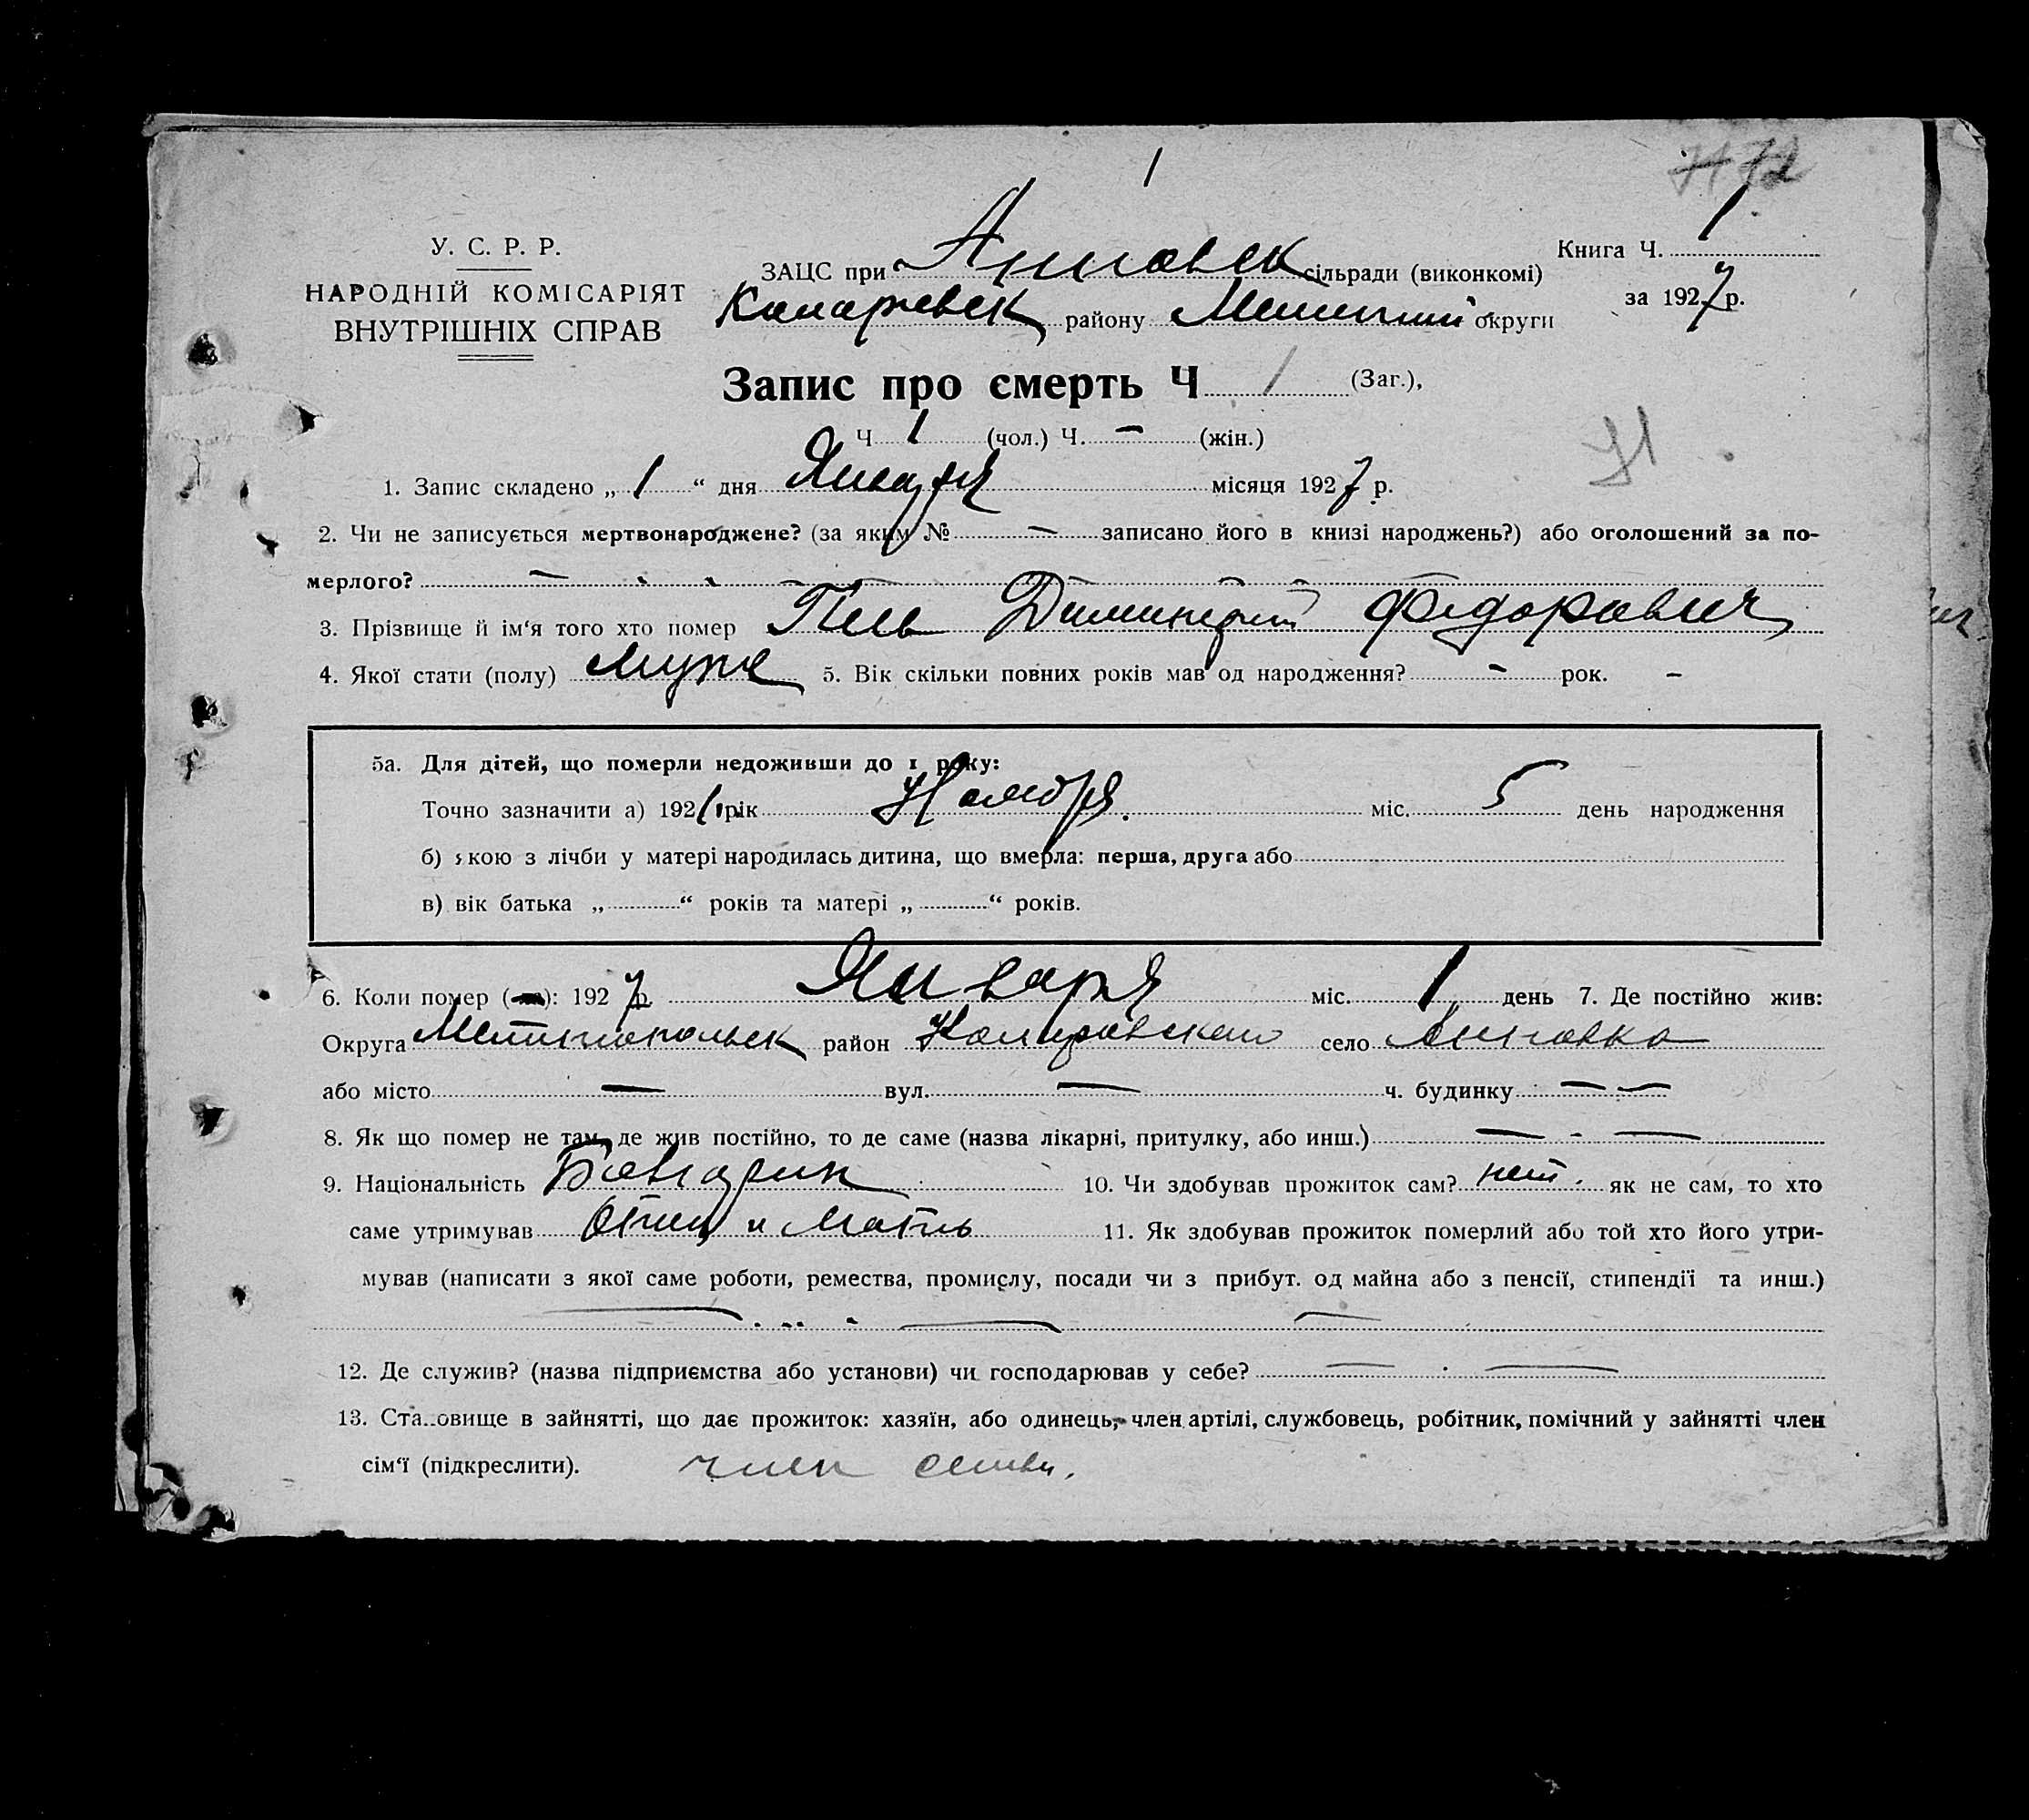 1
7172
У. С. Р. Р.
НАРОДНІЙ КОМІСАРІЯТ
ВНУТРІШНІХ СПРАВ
ЗАЦС при Анновск сільради (виконкомі)
районy округи
Книга Ч. 1
за 1927 р.
Запис про смерть Ч 1 (Заг.),
Ч 1 (чол.) Ч. — (жін.)
71
1. Запис складено „ 1 “ дня Января місяця 1927 р.
2. Чи не записується мертвонароджене? (за яким № — записано його в книзі народжень?) або оголошений за по-
мерлого? —
3. Прізвище й ім‘я того хто помер Димитрий Федорович
4. Якої стати (полу) муж 5. Вік скільки повних років мав од народження? — рок. —
5а. Для дітей, що померли недоживши до 1 року:
Точно зазначити а) 192 рік Ноября міс. 5 день народження
б) якою з лічби у матері народилась дитина, що вмерла: перша, друга або
в) вік батька „ “ років та матері „ “ років.
6. Коли помер ( ): 1927 р. Января міс. 1 день 7. Де постійно жив:
Округа Мелитопольск район село Анновка
або місто — вул. — ч. будинку — —
8. Як що помер не там, де жив постійно, то де саме (назва лікарні, притулку, або инш.) — - —
9. Національність Болгарин 10. Чи здобував прожиток сам? нет. як не сам, то хто
саме утримував Отец и Мать 11. Як здобував прожиток померлий або той хто його утри-
мував (написати з якої саме роботи, ремества, промислу, посади чи з прибут. од майна або з пенсії, стипендії та инш.)
12. Де служив? (назва підприємства або установи) чи господарював у себе? — . —
13. Становище в зайнятті, що дає прожиток: хазяїн, або одинець, член артілі, службовець, робітник, помічний у зайнятті член
сім‘ї (підкреслити). член семьи.